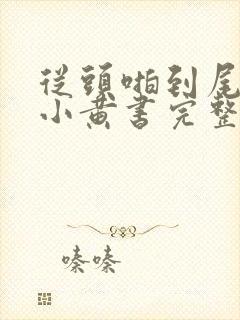 從頭啪到尾
小黃書完整
嗪嗪